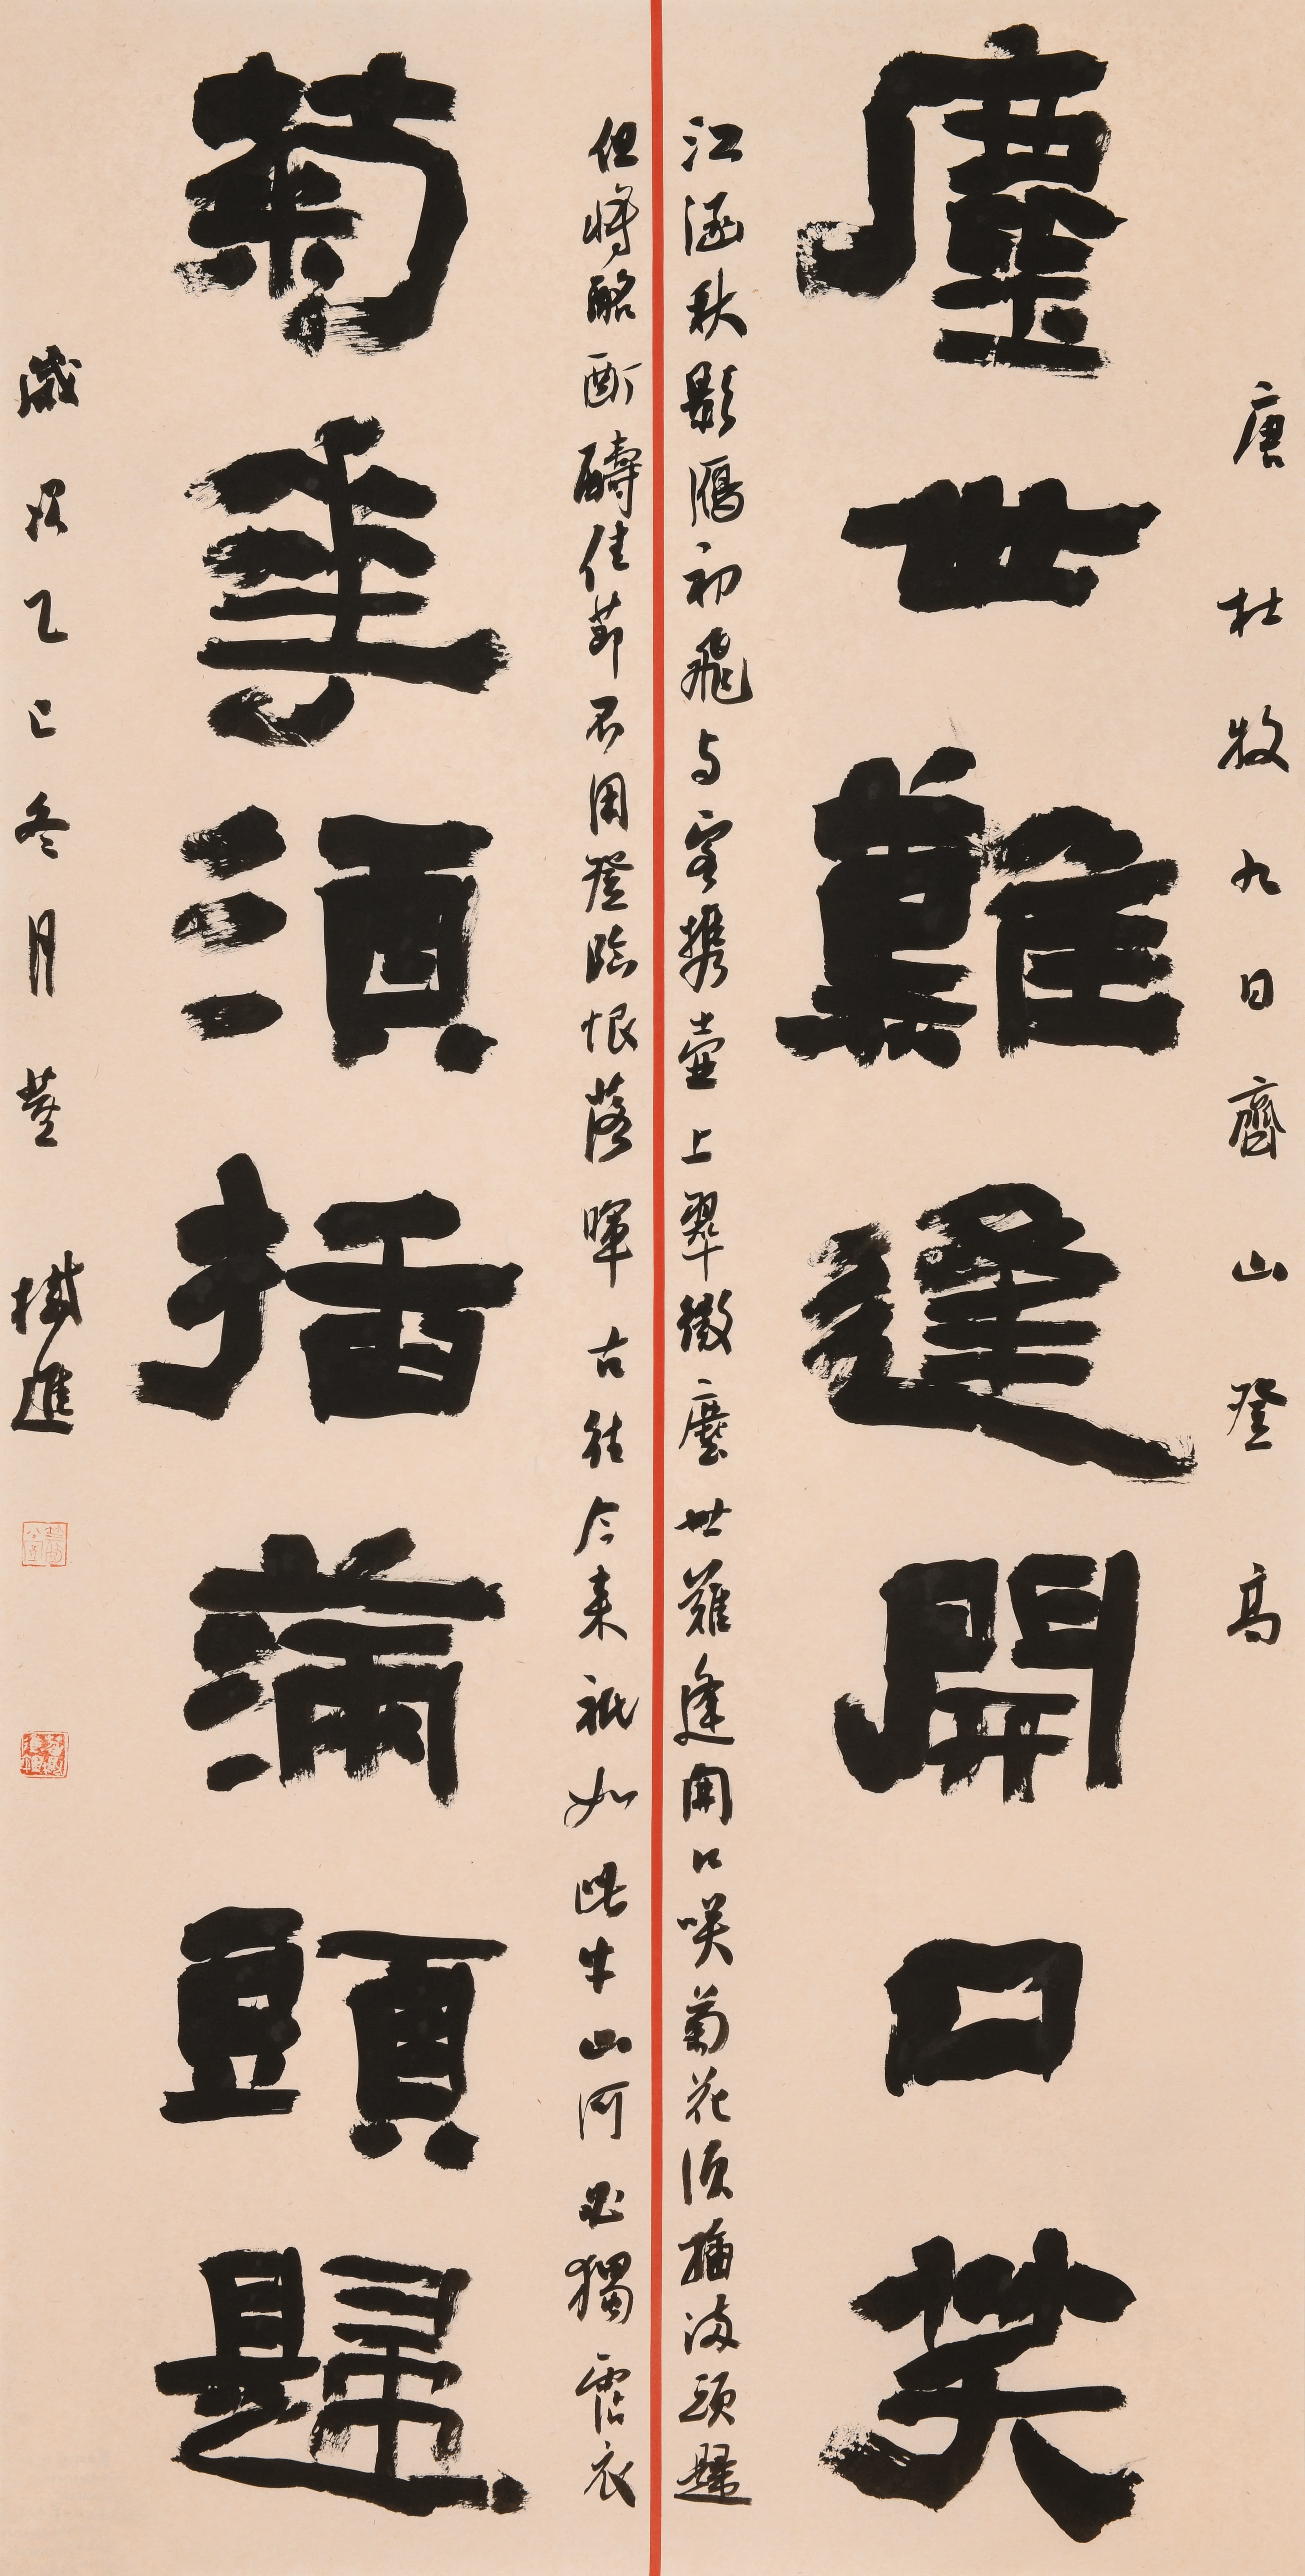 唐杜牧九日齊山登高
塵世難逢開口笑
江涵秋影鴈初飛与客携壺上翠微塵世難逢開口咲菊花須插滿頭歸
但將酩酊醻佳節不用登臨恨落暉古往今來祇如此牛山何必獨霑衣
菊華須插滿頭歸
歲次乙巳冬月